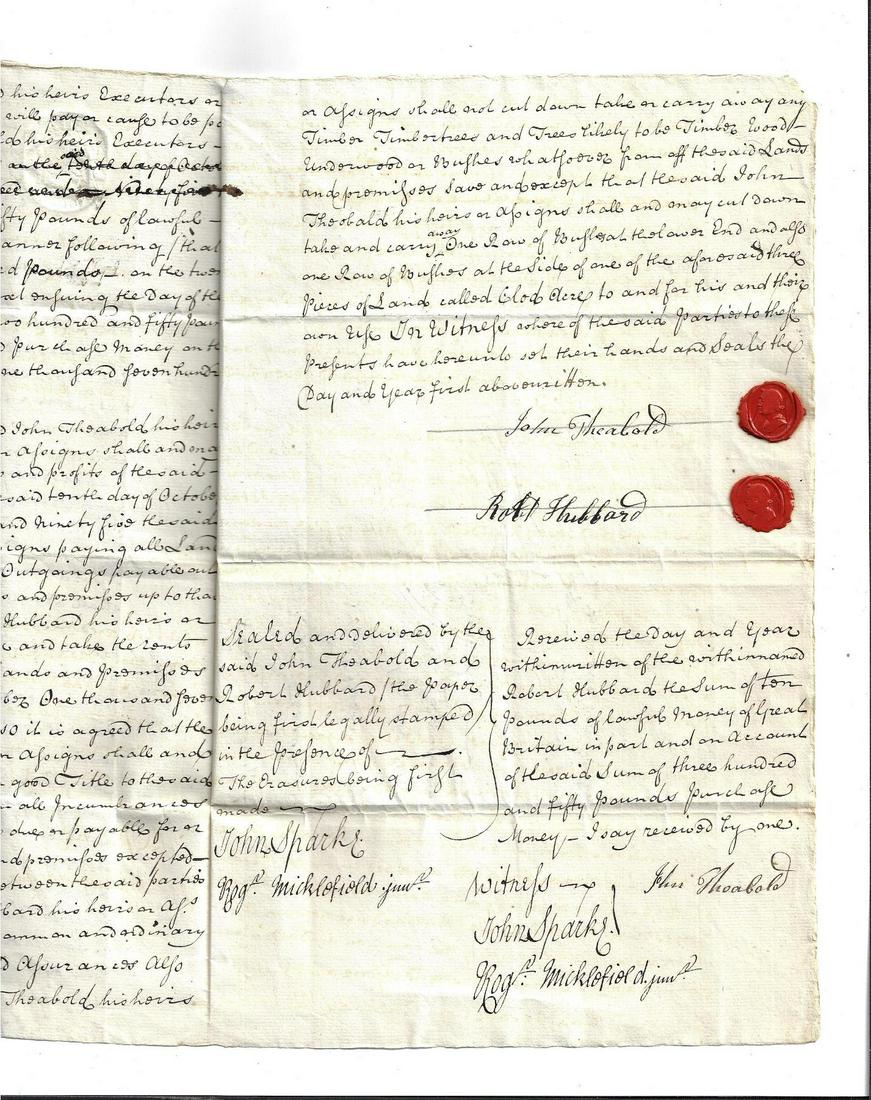 his heirs Executors or
will pay or cause to be
his heirs Executors
said
on the tenth day of
fifty Pounds of lawful
manner following / that
Pounds on the
ensuing the Day of the
two hundred and fifty
Purchase Money on
One thousand seven
John Theobald his heirs
or Assigns shall and
and profits of the said
said tenth day of October
and Ninety five the said
paying all Land
Outgoings payable out
and premisses up to
Hubbard his heirs or
and take the rents
Lands and Premisses
One thousand seven
so it is agreed that the
or Assigns shall and
good Title to the said
all Incumbrances
due or payable for or
and premisses excepted
between the said parties
Hubbard his heirs or Ass.
common and ordinary
Assurances Also
Theobald his heirs
or Assigns shall not cut down take or carry away any
Timber Timbertrees and Trees likely to be Timber Wood
Underwood or Bushes whatsoever from off the said Lands
and premisses save and except that the said John
Theobald his heirs or Assigns shall and may cut down
away
take and carry One Row of Bushes at the lower End and also
one Row of Bushes at the Side of one of the aforesaid three
Pieces of Land called Clod Acre to and for his and their
own Use In Witness whereof the said Parties to these
Presents have hereunto set their hands and Seals the
Day and Year first abovewritten.
John Theobald
Robt Hubbard
Sealed and delivered by the
said John Theobald and
Robert Hubbard / the Paper
being first legally stamped /
in the Presence of
The Erasures being first
made
John Sparke.
Regd. Micklefield junr.
Received the Day and Year
withinwritten of the withinnamed
Robert Hubbard the Sum of ten
Pounds of lawful Money of Great
Britain in part and on Account
of the said Sum of three hundred
and fifty Pounds Purchase
Money – I say received by me.
Witness John Theobald
John Sparke.
Regd. Micklefield junr.